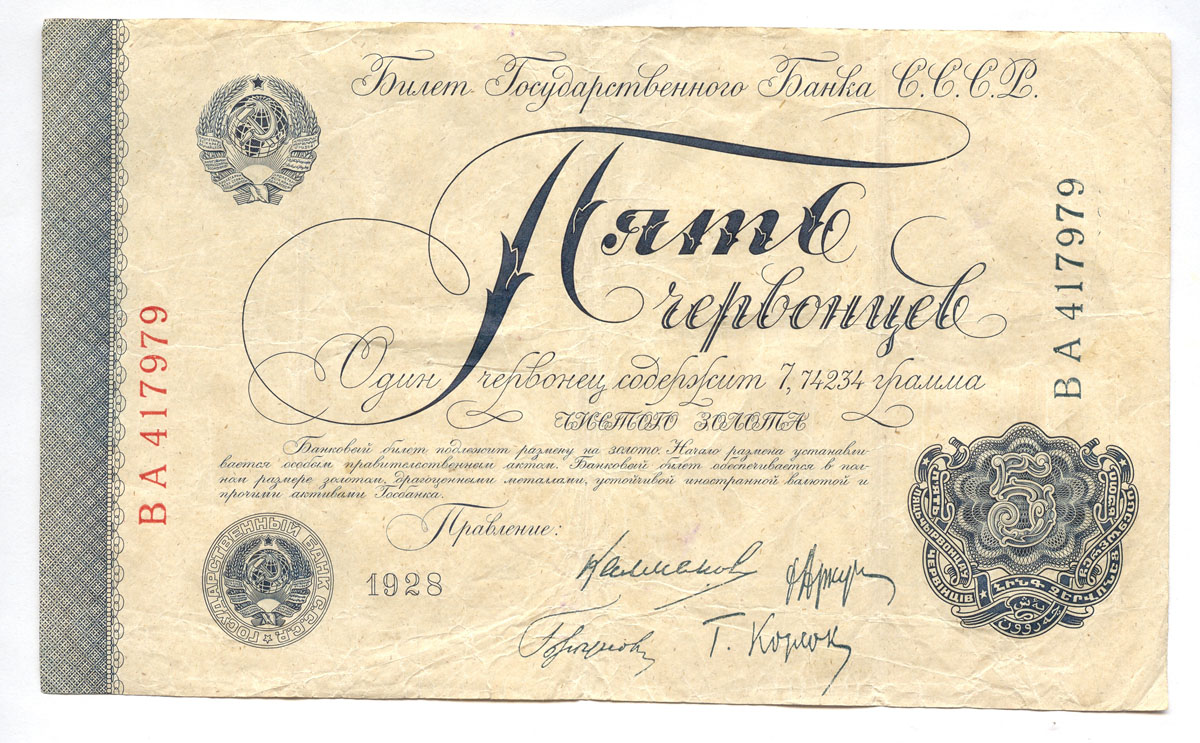 Билет Государственного Банка С.С.С.Р.
Пять
червонцев
Один червонец содержит 7,74234 грамма
чистого золота
Банковый билет подлежит размену на золото. Начало размена устанавли-
вается особым правительственным актом. Банковый билет обеспечивается в пол-
ном размере золотом, драгоценными металлами, устойчивой иностранной валютой и
прочими активами Госбанка.
Правление:
1928
ВА 417979
ВА 417979
ГОСУДАРСТВЕННЫЙ БАНК С.С.С.Р.
5
П'ЯТЬ
ЧЕРВІНЦІВ
ՀԻՆԳ ՉԵՐՎՈՆԵՑ
Калманов
Т. Корлок